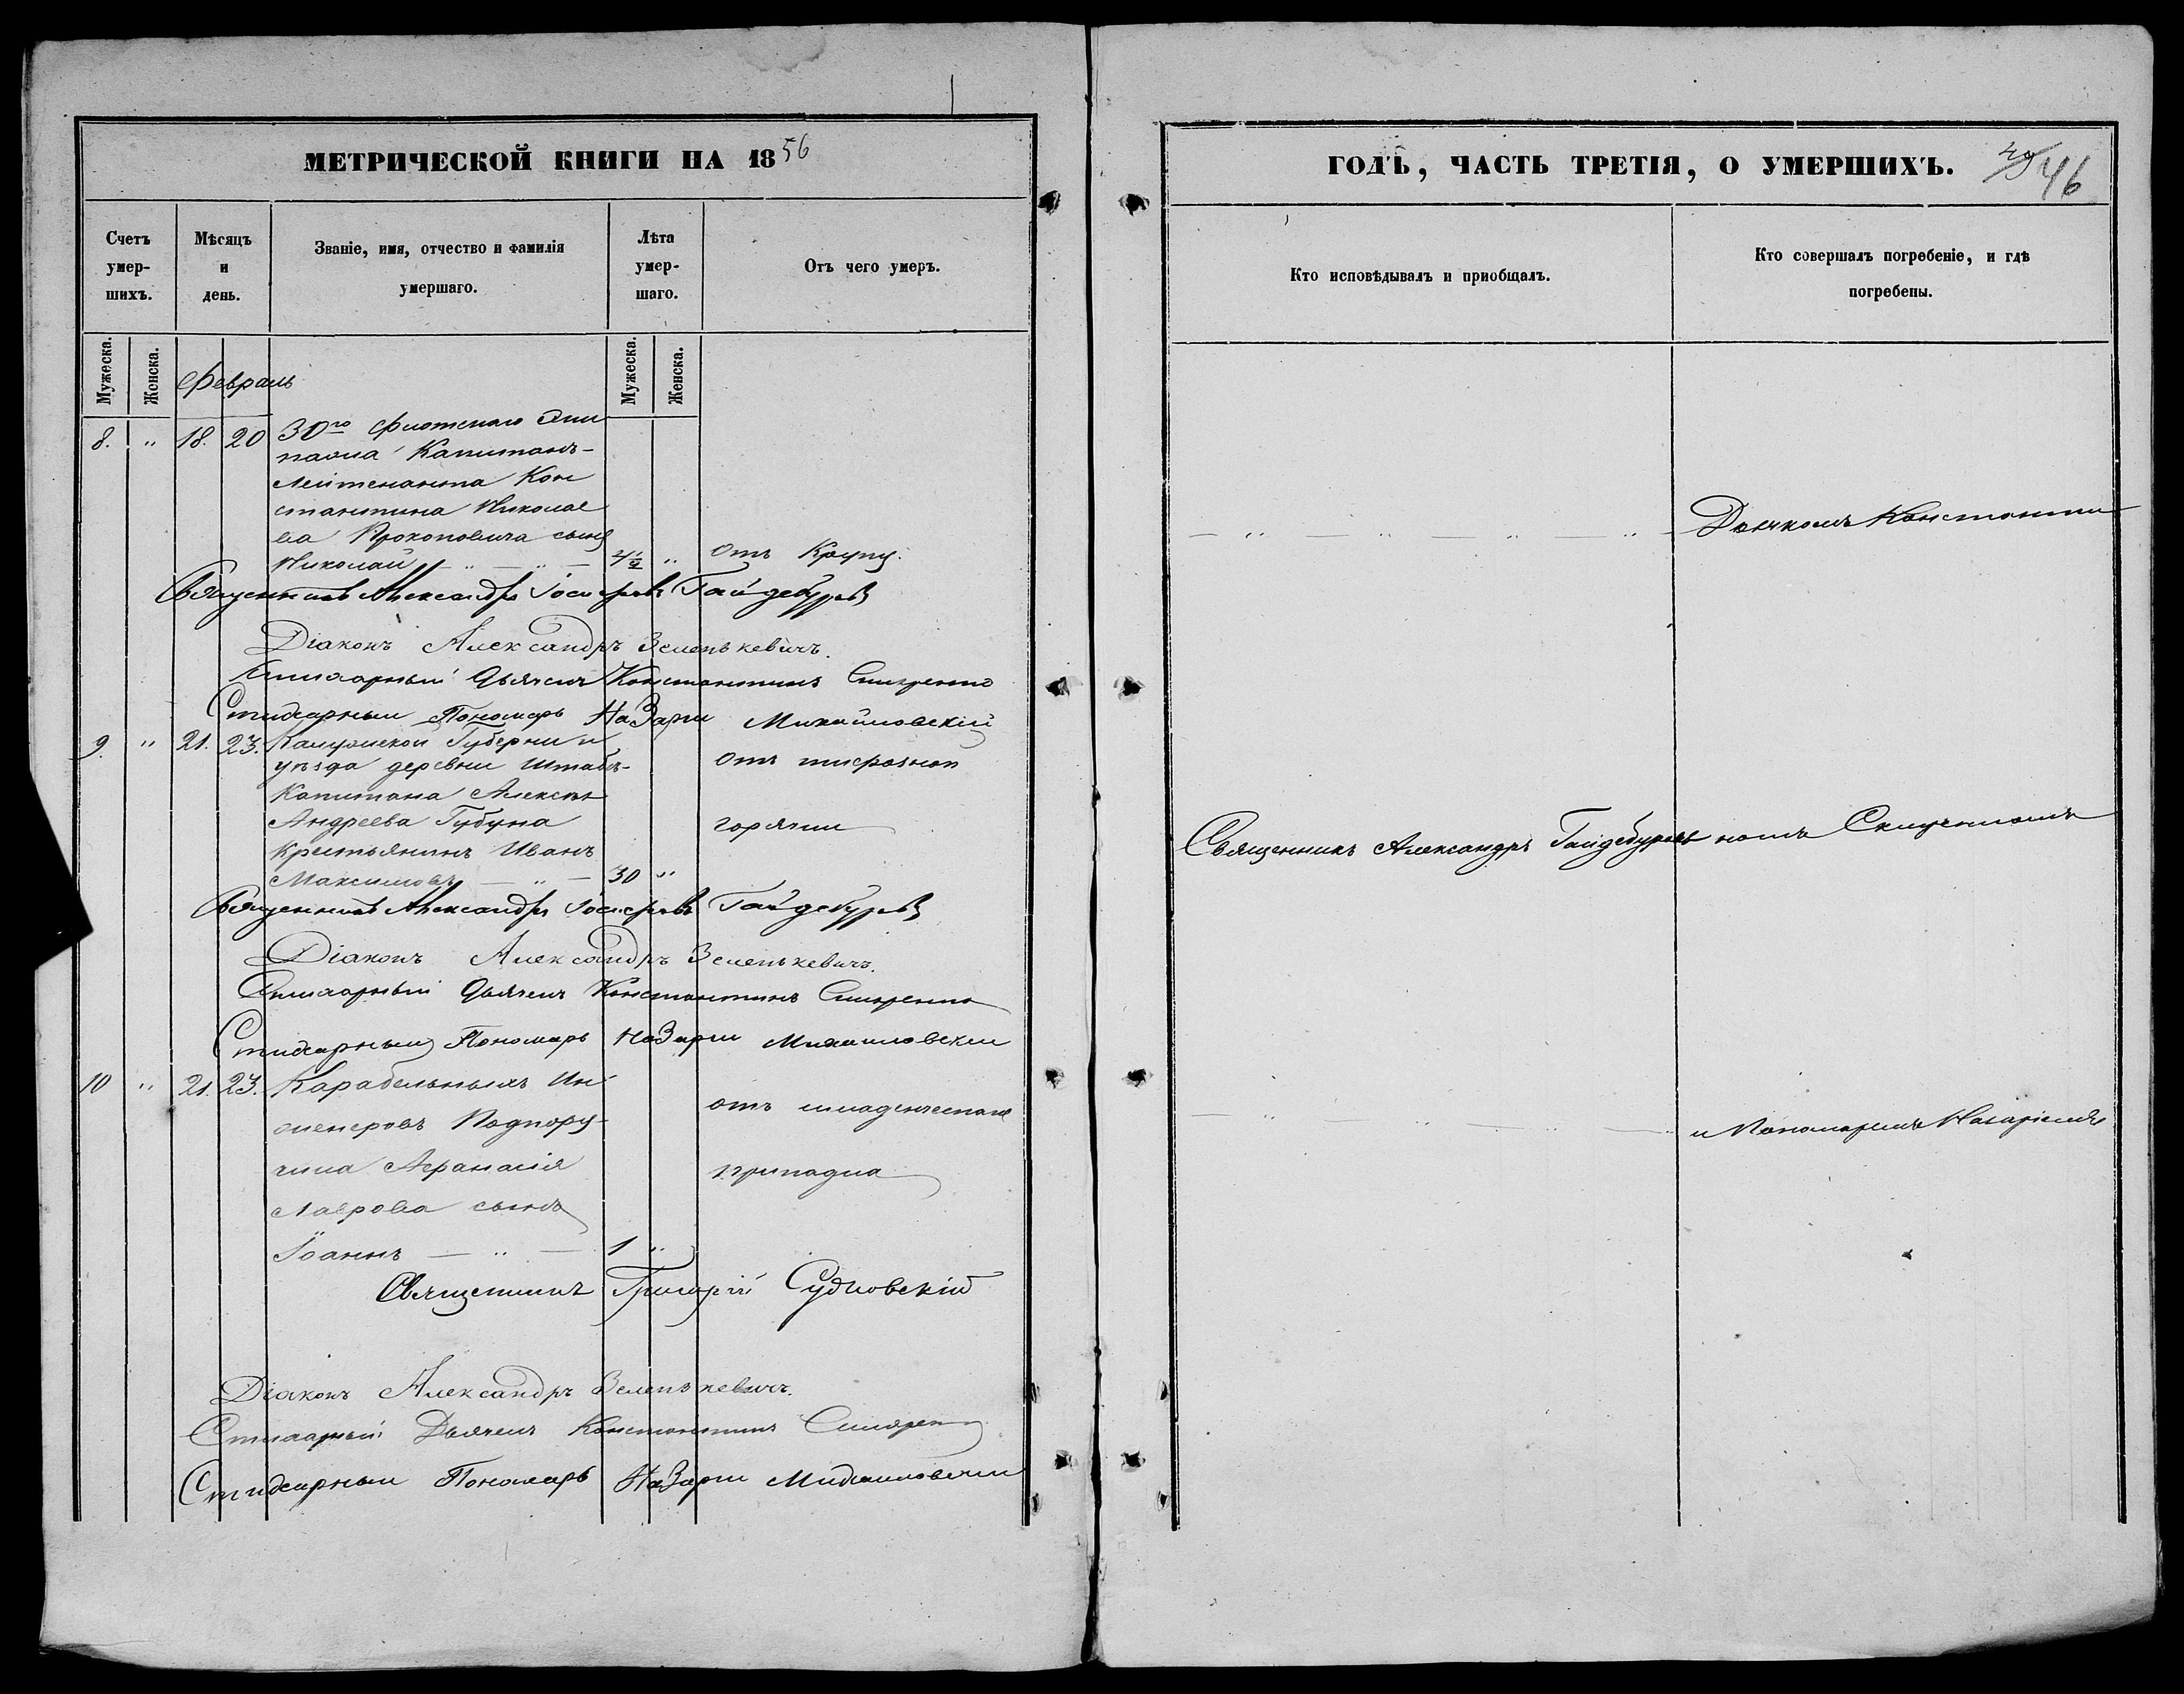 МЕТРИЧЕСКОЙ КНИГИ НА 1856
Счетъ умер-шихъ.
Мѣсяцъ и день.
Званіе, имя, отчество и фамилія умершаго.
Лѣта умер-шаго.
Отъ чего умеръ.
Мужеска.
Женска.
Мужеска.
Женска.
Февраль
8. " 18. 20 30го Флотскаго Эки
пажа Капитанъ-
Лейтенанта Кон
стантина Николае
ва Прокоповича сынъ
Николай — " — " — 4½ " Отъ Крупу.
Священникъ Александръ Гайдебуровъ
Діаконъ Александръ Зеленькевичъ.
Стихарный Дьячекъ Константинъ
Стихарный Пономарь Назарій Михайловскій
9. " 21. 23. Калужской Губерніи и
уѣзда деревни Штабъ- Отъ тифозной
Капитана Алексѣя
Андреева Губуна горячки
Крестьянинъ Иванъ
Максимовъ — " — 30 "
Священникъ Александръ Гайдебуровъ
Діаконъ Александръ Зеленькевичъ.
Стихарный Дьячекъ Константинъ
Стихарный Пономарь Назарій Михайловскій
10 " 21. 23. Карабельныхъ Ин
женеровъ Подпору- отъ младенческаго
чика Афанасія припадка
Лаврова сынъ
Іоаннъ — " — 1 "
Священникъ Григорій Судковскій
Діаконъ Александръ Зеленькевичъ.
Стихарный Дьячекъ Константинъ
Стихарный Пономарь Назарій Михайловскій
ГОДЪ, ЧАСТЬ ТРЕТІЯ, О УМЕРШИХЪ.
46
Кто исповѣдывалъ и приобщалъ.
Кто совершалъ погребеніе, и гдѣ погребены.
— " — " — " — " — Дьячкомъ Константи
Священникъ Александръ Гайдебуровъ номъ
— " — " — " — и Пономаремъ Назаріемъ